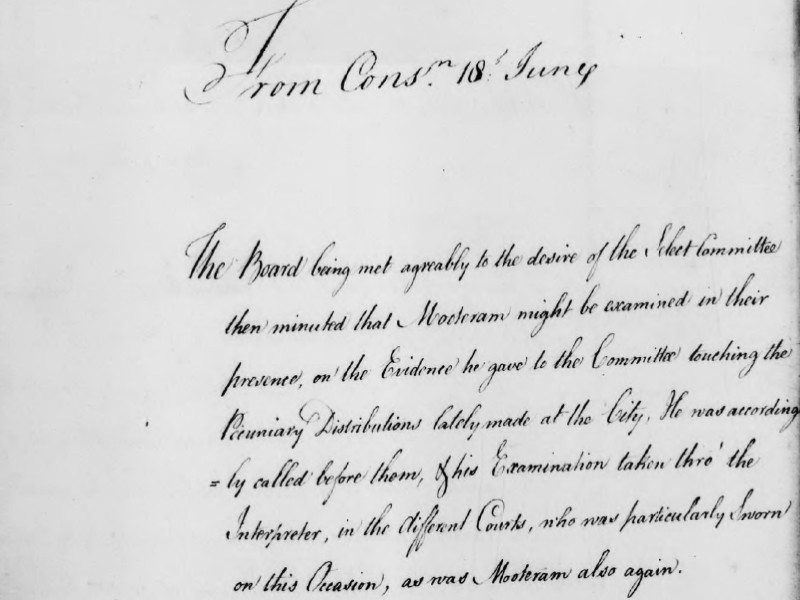 From Cons.n 18.t June
The Board being met agreably to the desire of the Select Committee
then minuted that Mooteram might be examined in their
presence, on the Evidence he gave to the Committee touching the
Pecuniary Distributions lately made at the City, He was according
=ly called before them, & his Examination taken thro' the
Interpreter, in the different Courts, who was particularly Sworn
on this Occasion, as was Mooteram also again.